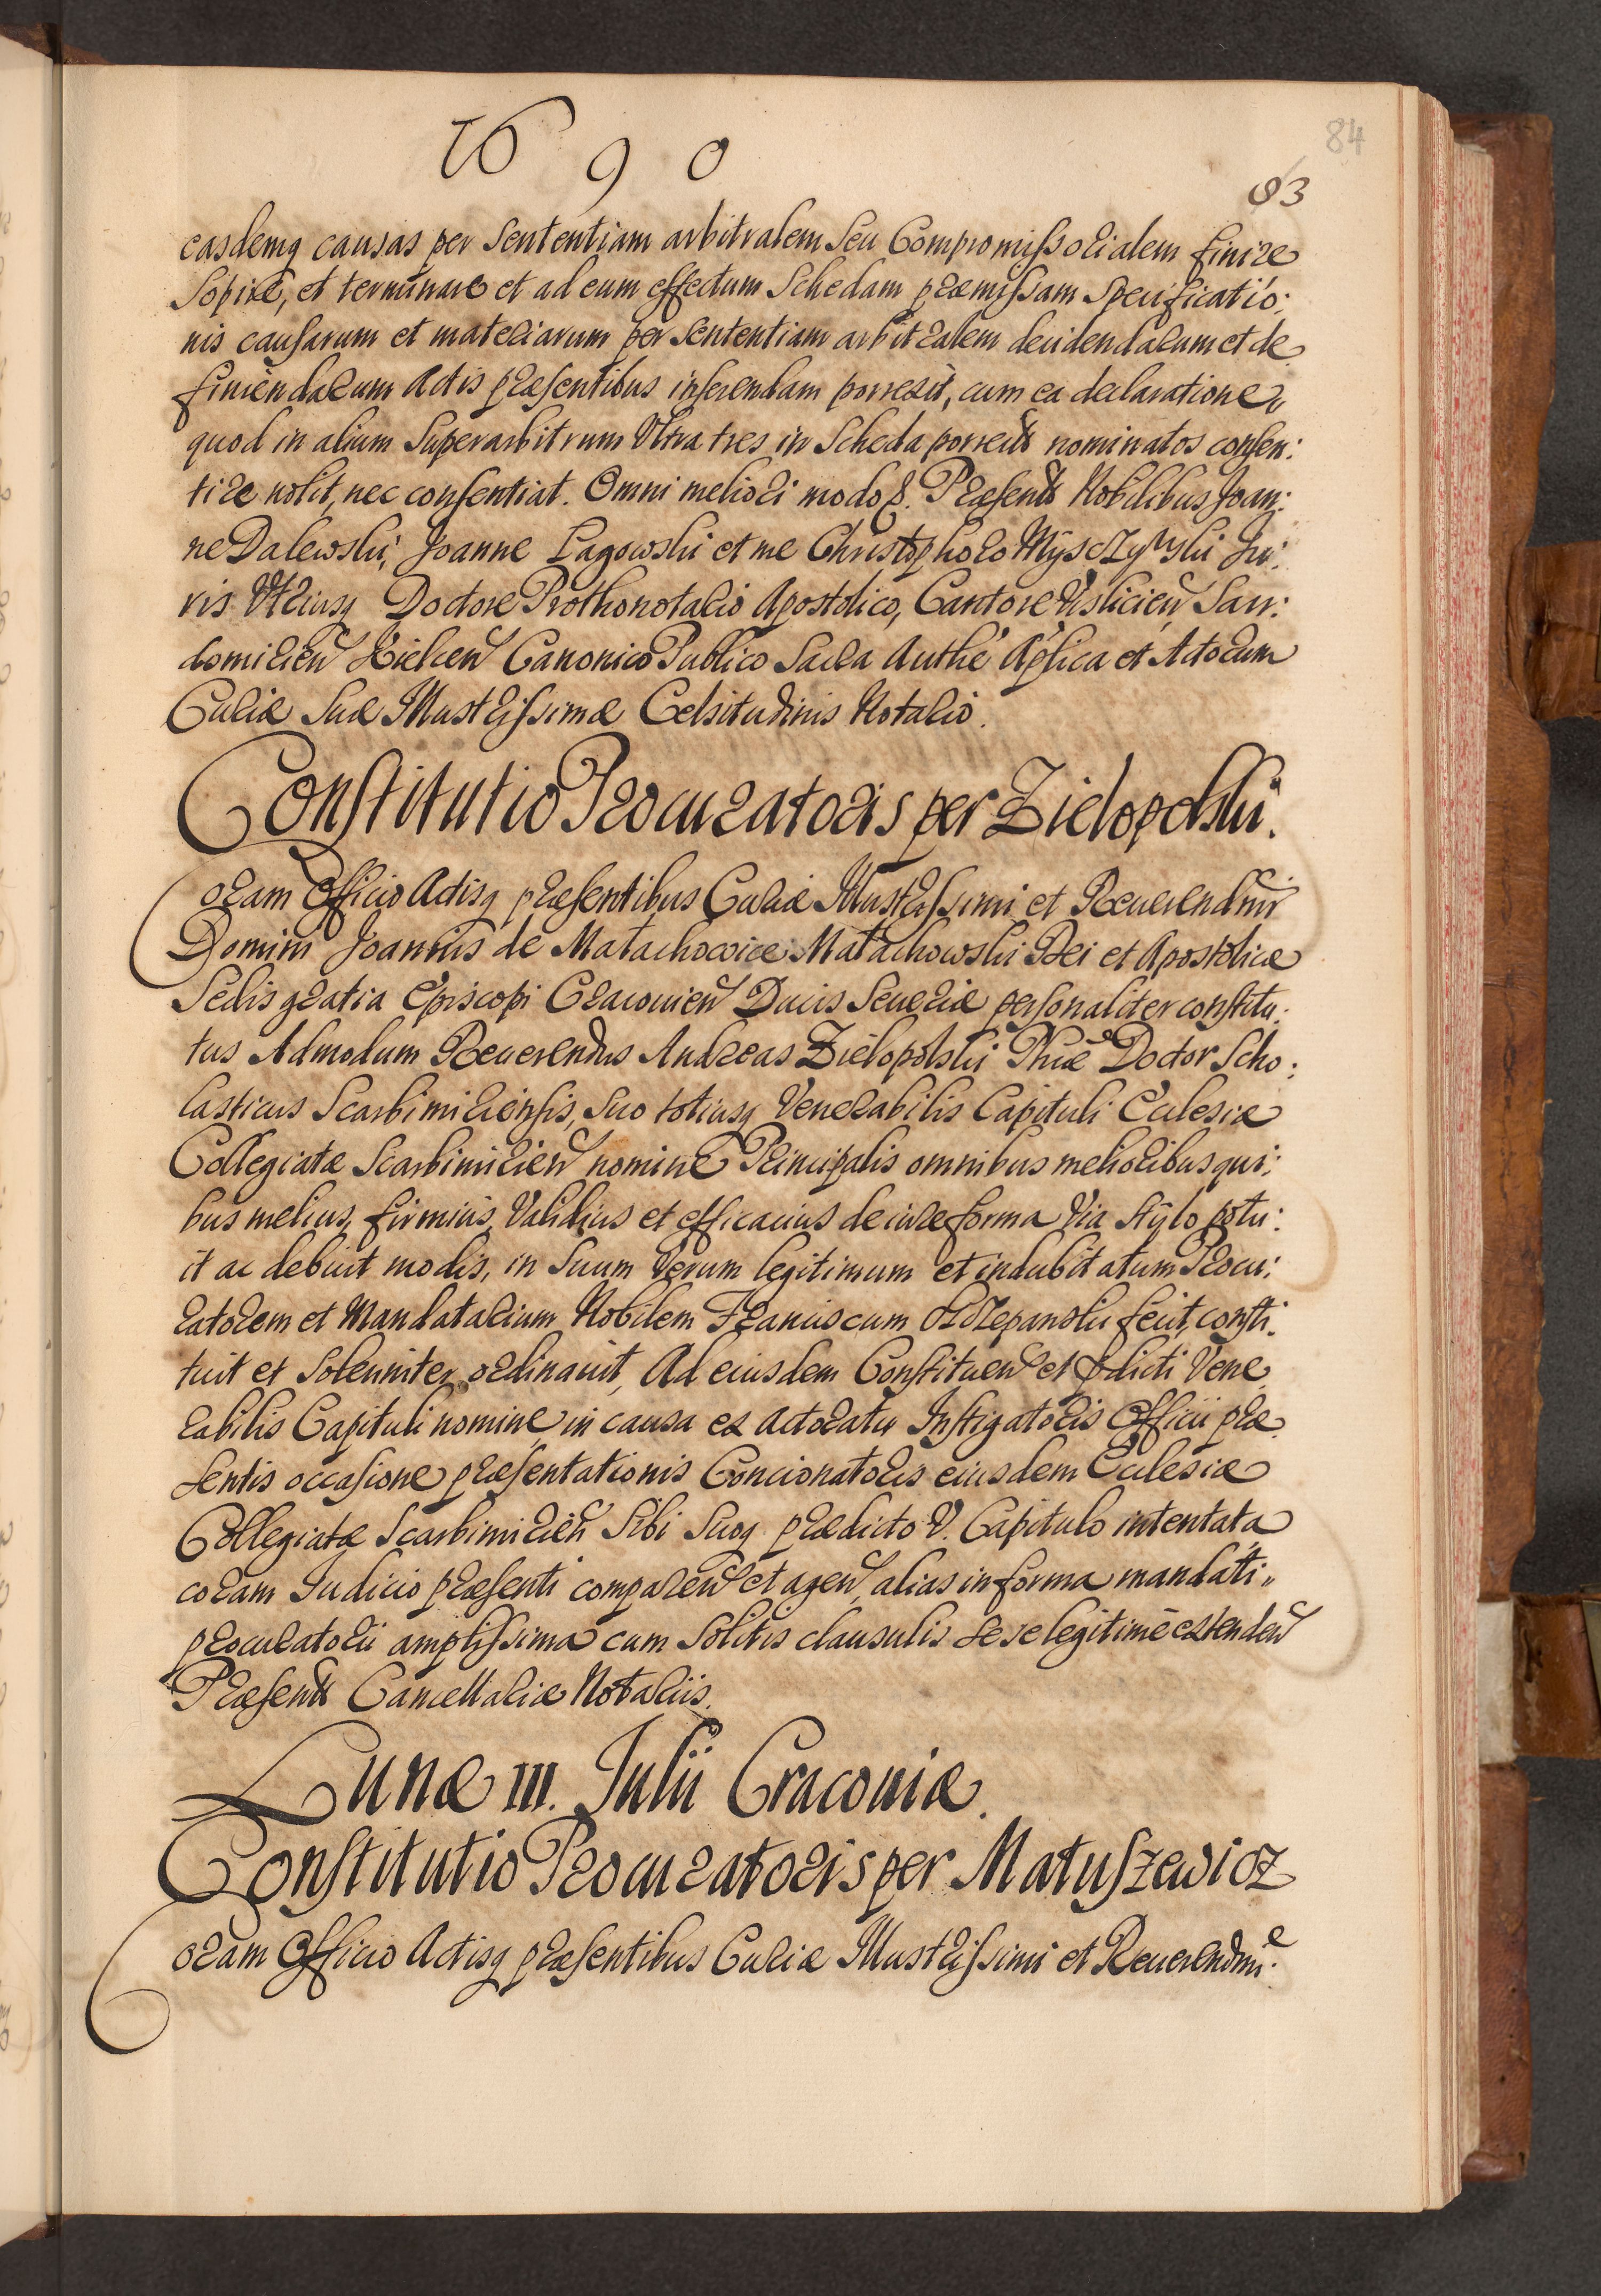 1690
84
83
easdemq causas per Sententiam arbitralem Seu Compromissorialem finire
Sopire, et terminare et ad eum effectum Schedam præmissam Specificatio:
nis causarum et materiarum per Sententiam arbitralem decidendarum et de
finiendarum Actis præsentibus inserendam porrexit, cum ea declaratione,
quod in alium Superarbitrum Ultra tres in Scheda porrecta nominatos consen:
tire nolit, nec consentiat. Omni meliori modo p. Præsentt Nobilibus Joan:
ne Dalewski, Joanne Lagowski et me Christophoro Ju:
ris Utriusq Doctore Prothonotario Apostolico, Cantore Vislicien, San:
domirien Kielcen Canonico Publico Sacra Authe Aplica et Actorum
Curiæ Suæ Illustrissimæ Celsitudinis Notario.
Constitutio Procuratoris per Zielopolski.
Coram Officio Actisq præsentibus Curiæ Illustrissimi et Reuerendmi
Domini Joannis de Małachowice Małachowski Dei et Apostolicæ
Sedis gratia Episcopi Cracouien Ducis Seueriæ personaliter constitu:
tus Admodum Reuerendus Andreas Zielopolski Phiæ Doctor Scho:
lasticus Scarbimiriensis, Suo totiusq Venerabilis Capituli Ecclesiæ
Collegiatæ Scarbimirien nomine Principalis omnibus melioribus qui:
bus melius, firmius, Validius et efficacius de iure forma Via Stylo potu:
it ac debuit modis, in Suum Verum legitimum et indubitatum Procu:
ratorem et Mandatarium Nobilem Franciscum fecit, consti:
tuit et Solenniter ordinauit, Ad eiusdem Constituen et pdicti Vene
rabilis Capituli nomine in causa ex actoratu Instigatoris Officii præ
sentis occasione præsentationis Concionatoris eiusdem Ecclesiæ
Collegiatæ Scarbimirien Sibi Suoq prædicto V. Capitulo intentata
coram Iudicio præsenti comparen et agen, alias in forma mandati
procuratorii amplissima cum Solitis clausulis Se se legitime extenden
Præsentt Cancellariæ Notariis.
Lunæ III. Julii Cracouiæ.
Constitutio Procuratoris per Matuszewicz
Coram Officio Actisq præsentibus Curiæ Illustrissimi et Reuerendmi